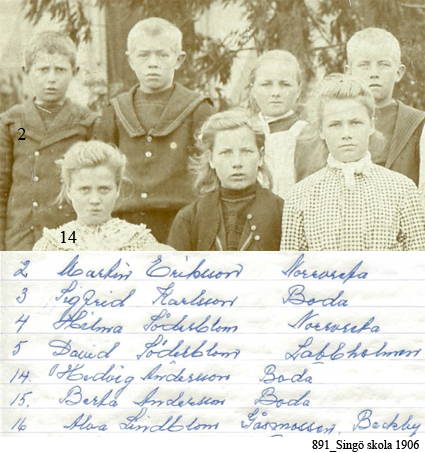 2
14
2 Martin Eriksson Norrveda
3 Sigfrid Karlsson Boda
4 Hilma Söderblom Norrveda
5 David Söderblom
14. Hedvig Andersson Boda
15. Berta Andersson Boda
16 Alva Lindblom Backby
891_Singö skola 1906